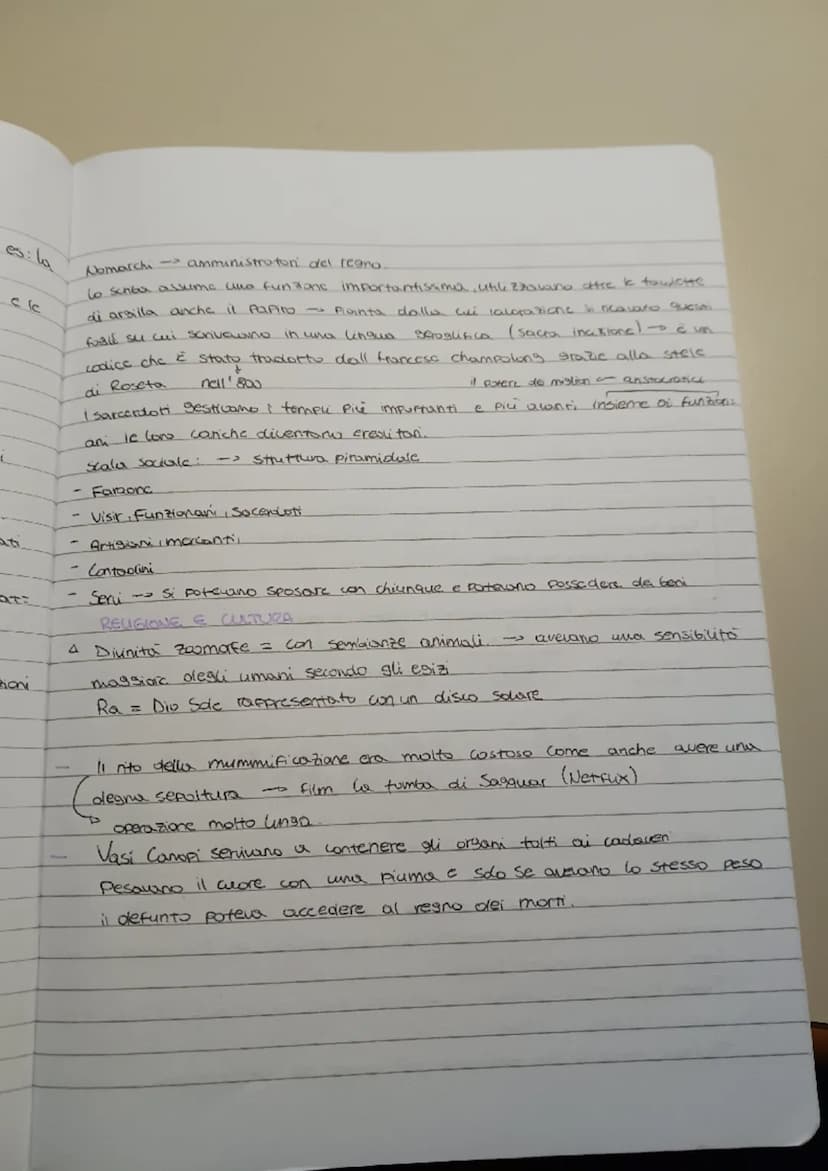 es: la
Nomarchi -> amministratori del regno.
Lo scriba assume una funzione importantissima, utilizzavano oltre le tavolette
e le
di argilla anche il papiro -> pianta dalla cui lavorazione si ricavano questi
fogli su cui scrivevano in una lingua geroglifica (sacra incisione) -> è un
codice che è stato tradotto dall francese champolong grazie alla stele
di Roseta nell'800
il potere dei migliori <- aristocratici
I sarcerdoti gestivano i templi più importanti e più avanti, insieme ai funzion:
ani le loro cariche diventano ereditari.
scala sociale: -> struttura piramidale
- Faraone
- Visir, Funzionari, Sacerdoti
- Artigiani, mercanti,
ati
- Contadini
- Servi -> si potevano sposare con chiunque e potevano possedere dei beni
RELIGIONE E CULTURA
Δ Divinità zoomorfe = con sembianze animali -> avevano una sensibilità
maggiore degli umani secondo gli egizi
Ra = Dio Sole rappresentato con un disco solare
- Il rito della mummificazione era molto costoso come anche avere una
degna sepoltura -> film la tomba di Saqquar (Netflix)
-> operazione molto lunga
- Vasi Canopi servivano a contenere gli organi tolti ai cadaveri
Pesavano il cuore con una piuma e solo se avevano lo stesso peso
il defunto poteva accedere al regno dei morti.